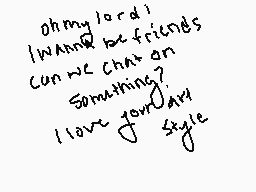 oh my lord!
I wanna be friends
can we chat on
something?
I love your art
style